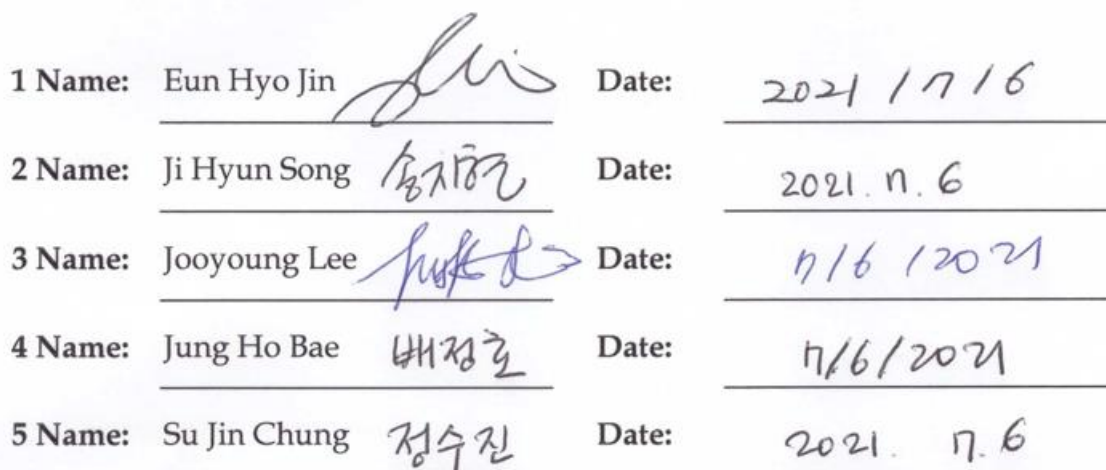 1 Name: Eun Hyo Jin Date: 2021 / 7 / 6
2 Name: Ji Hyun Song 송지현 Date: 2021. 7. 6
3 Name: Jooyoung Lee Date: 7/6 /2021
4 Name: Jung Ho Bae 배정호 Date: 7/6/2021
5 Name: Su Jin Chung 정수진 Date: 2021. 7. 6